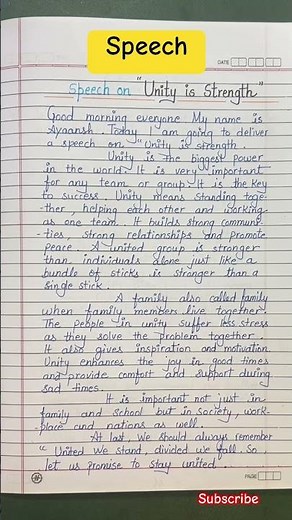 Speech
DATE
Speech on "Unity is Strength"
Good morning everyone My name is
Ayaansh. Today I am going to deliver
a speech on "Unity is strength.
Unity is the biggest power
in the world. It is very important
for any team or group. It is the key
to success. Unity means standing toge-
ther, helping each other and working
as one team. It builds strong communi-
-ties, strong relationships and promote
peace. A united group is stronger
than individuals alone just like a
bundle of sticks is stronger than a
single stick.
A family also called family
when family members live together.
The people in unity suffer less stress
as they solve the problem together.
It also gives inspiration and motivation.
Unity enhances the joy in good times
and provide comfort and support during
sad times.
It is important not just in
family and school but in society, work-
place and nations as well.
At last, we should always remember
"United we stand, divided we fall. So,
let us promise to stay united.
PAGE
Subscribe